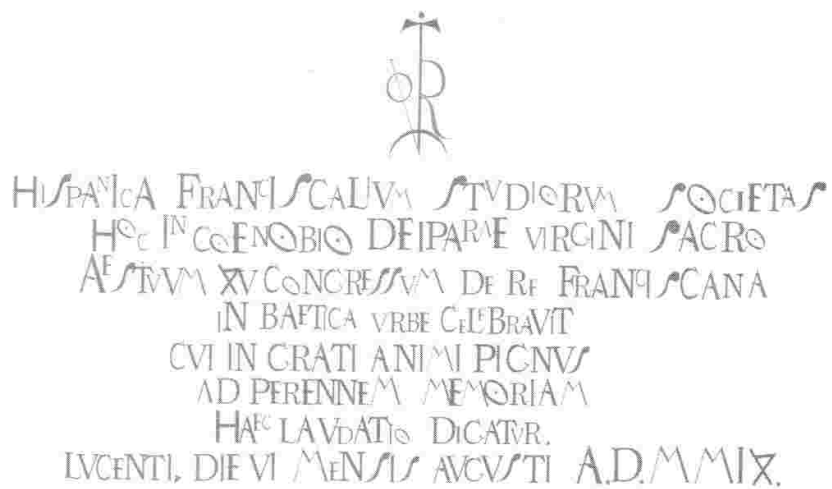 HISPANICA FRANCISCALIVM STVDIORVM SOCIETAS
HOC IN COENOBIO DEIPARAE VIRGINI SACRO
AESTVVM XV CONGRESSVM DE RE FRANCISCANA
IN BAETICA VRBE CELEBRAVIT
CVI IN GRATI ANIMI PIGNVS
AD PERENNEM MEMORIAM
HAEC LAVDATIO DICATVR.
LVCENTI, DIE VI MENSIS AVGVSTI A.D. MMIX.